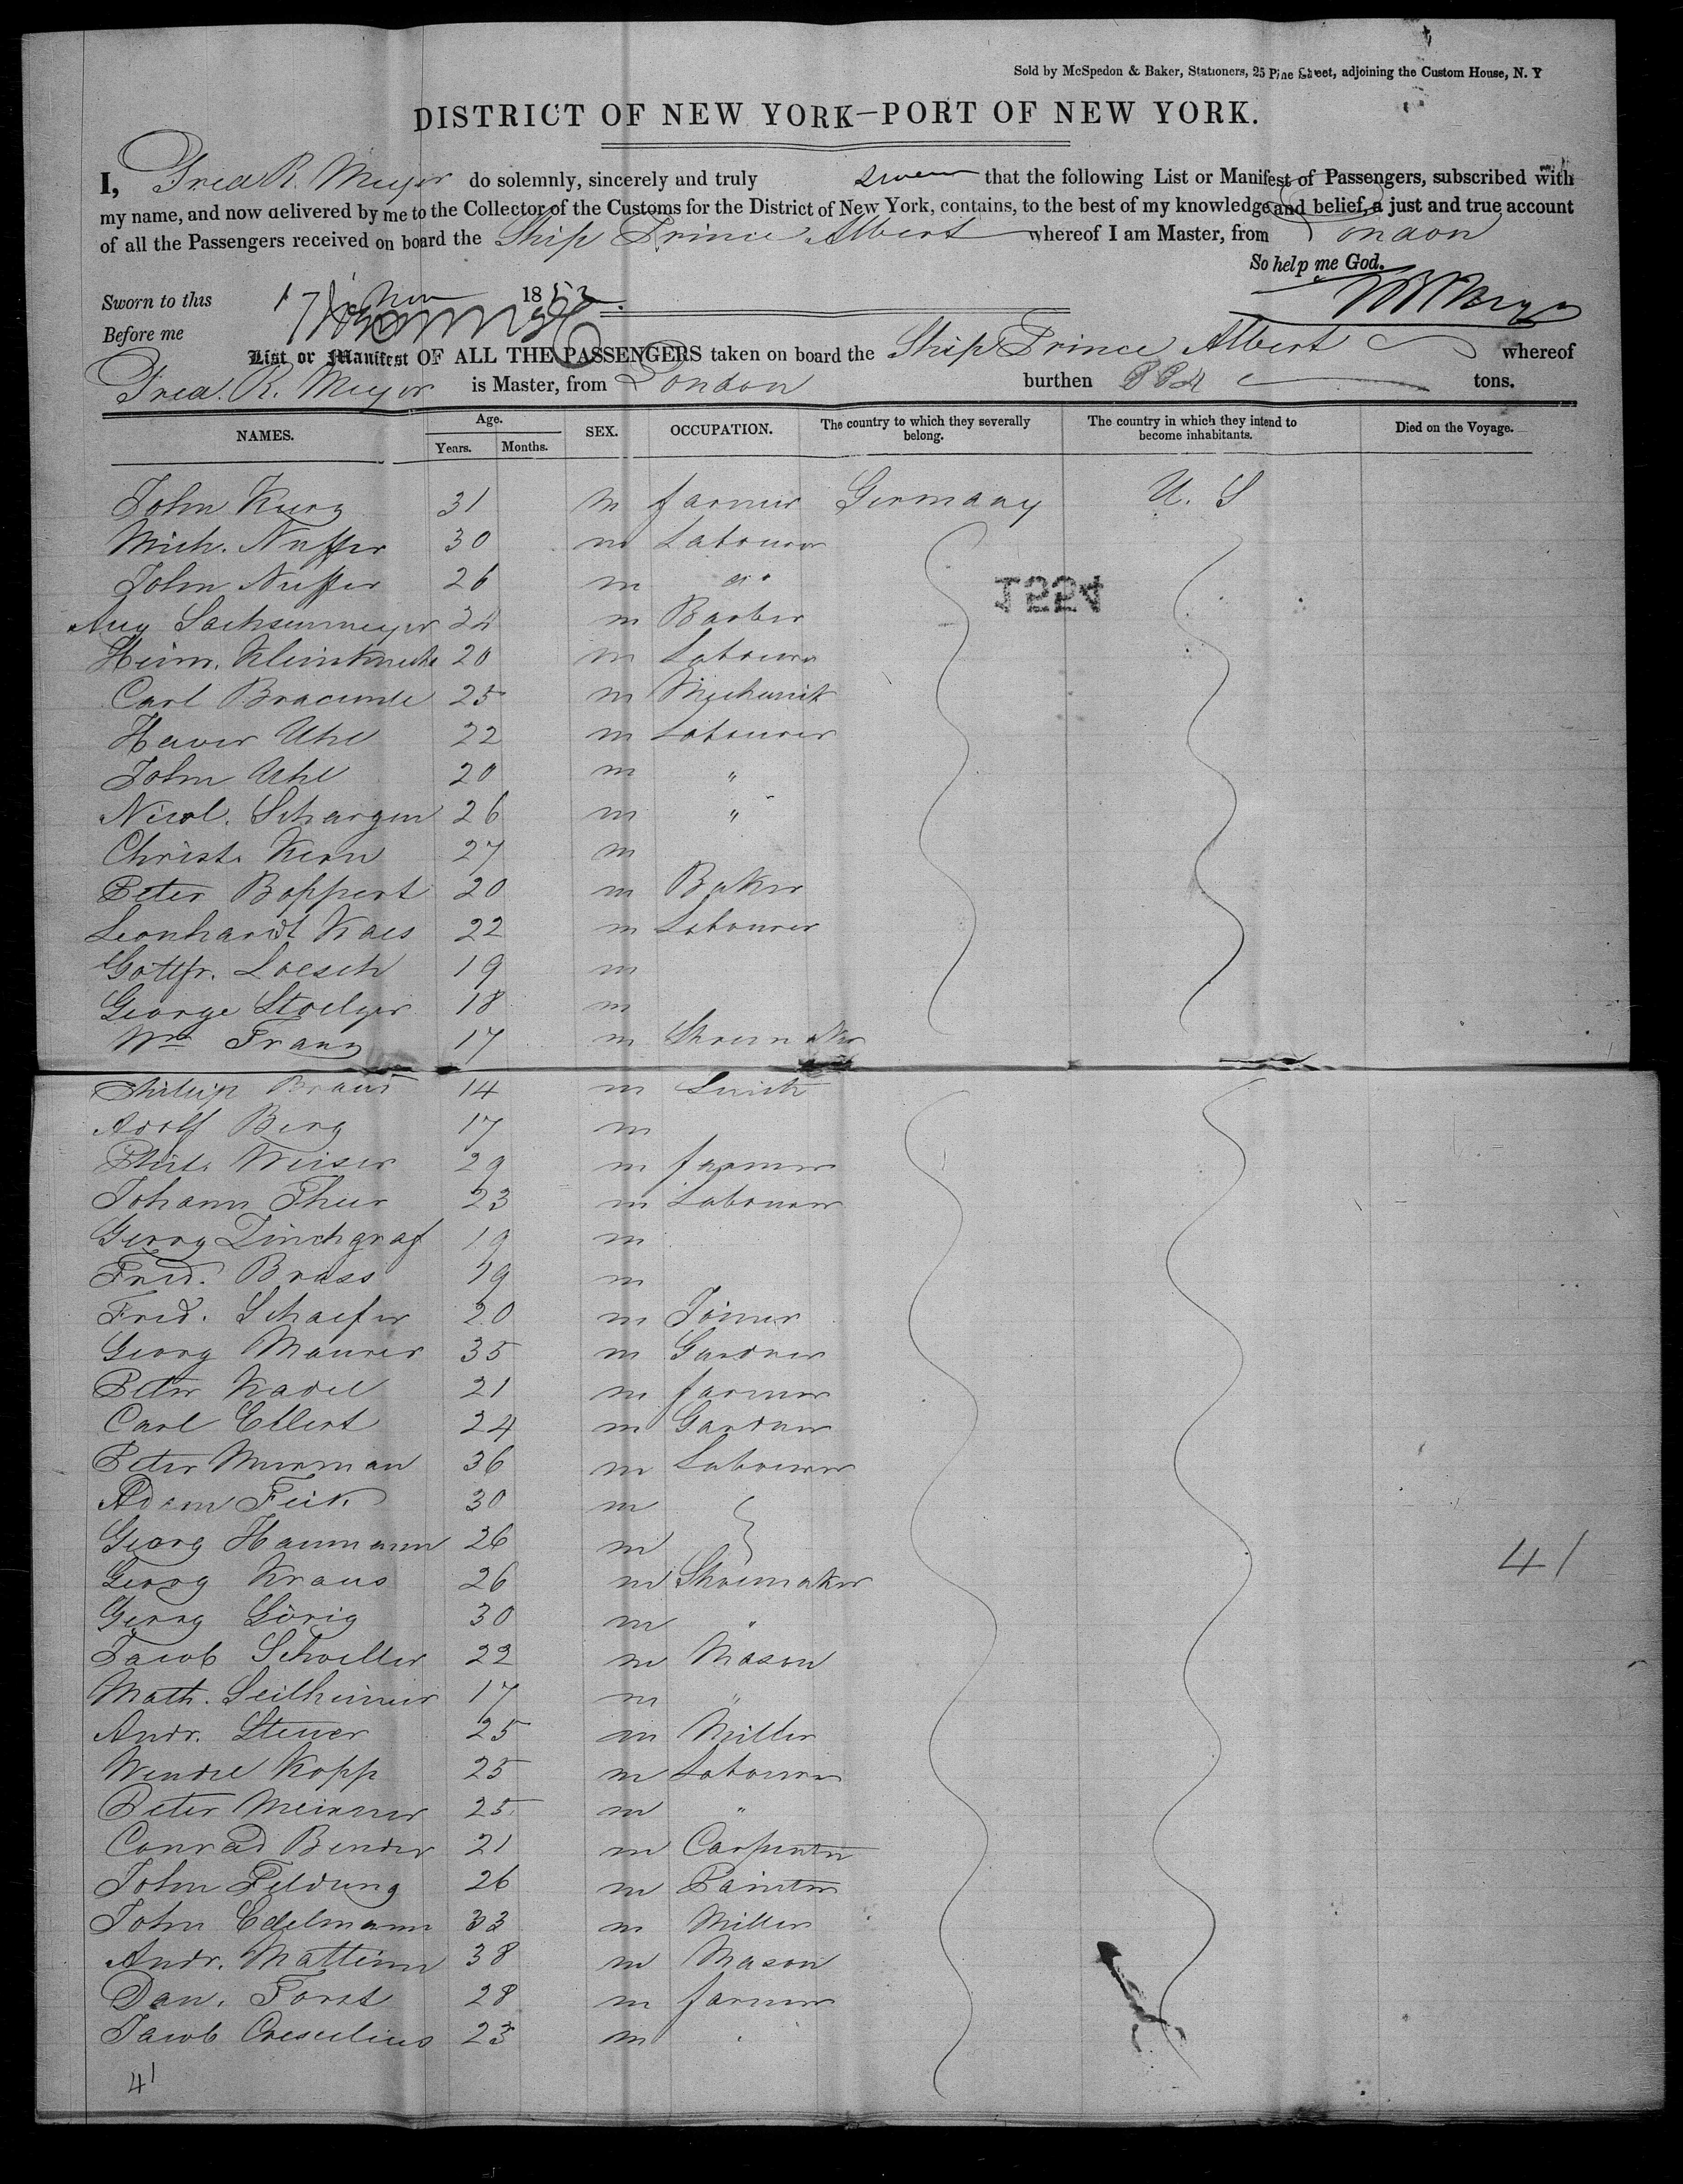 Sold by McSpedon & Baker, Stationers, 25 Pine Street, adjoining the Custom House, N. Y
DISTRICT OF NEW YORK—PORT OF NEW YORK.
I, Fred R. Meyer do solemnly, sincerely and truly swear that the following List or Manifest of Passengers, subscribed with
my name, and now delivered by me to the Collector of the Customs for the District of New York, contains, to the best of my knowledge and belief, a just and true account
of all the Passengers received on board the Ship Prince Albert whereof I am Master, from London
So help me God.
Sworn to this 17 Nov 1852
Before me
List or Manifest OF ALL THE PASSENGERS taken on board the Ship Prince Albert whereof
Fred. R. Meyer is Master, from London burthen 884 tons.
NAMES. Age. Years. Months. SEX. OCCUPATION. The country to which they severally belong. The country in which they intend to become inhabitants. Died on the Voyage.
John Kurz 31 m farmer Germany U. S
Mich. Nuffer 30 m Labourer
John Nuffer 26 m "
1224
Aug Sachsenmeyer 24 m Barber
Heinr. Kleinknecht 20 m Labourer
Carl 25 m Mechanik
Xaver Uhl 22 m Labourer
John Uhl 20 m "
Nicol. Schargen 26 m "
Christ. Kern 27 m
Peter Boppert 20 m Baker
Leonhardt Kaes 22 m Labourer
Gottfr. Loesch 19 m
George Stoelzer 18 m
Wm Franz 17 m Shoemaker
Philip Braus 14 m Smith
Adolf Berg 17 m
Phil. Weiser 29 m farmer
Johann Theur 23 m Labourer
Georg Zinchgraf 19 m
Fred. Brass 19 m
Fred. Schaefer 20 m Joiner
Georg Maurer 35 m Gardner
Peter Kadel 21 m farmer
Carl Ellert 24 m Gardner
Peter Murman 36 m Labourer
Adam Feik 30 m
Georg Haumann 26 m
41
Georg Kraus 26 m Shoemaker
Georg Görig 30 m "
Jacob Schoeller 22 m Mason
Math. Seilheimer 17 m "
Andr. Steuer 25 m Miller
Wendel Kopp 25 m Labourer
Peter Meixner 25 m "
Conrad Bender 21 m Carpenter
John Feldung 26 m Painter
John Edelmann 33 m Miller
Andr. Mattinn 38 m Mason
Dan. Forst 28 m farmer
Jacob 23 m
41